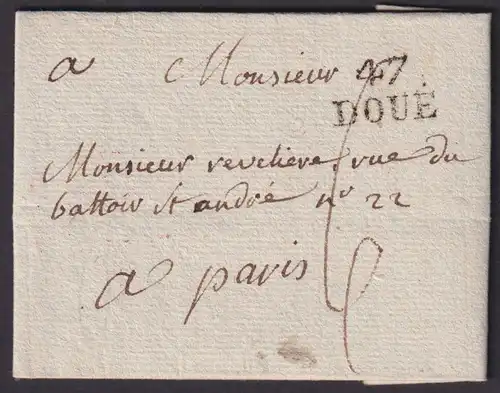 a Monsieur
DOUÉ
Monsieur reveliere rue du
battoir St andré no 22
a paris